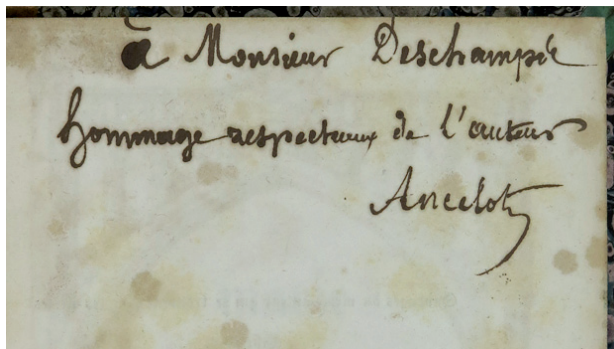 à Monsieur Deschamps
hommage respectueux de l'auteur
Ancelot